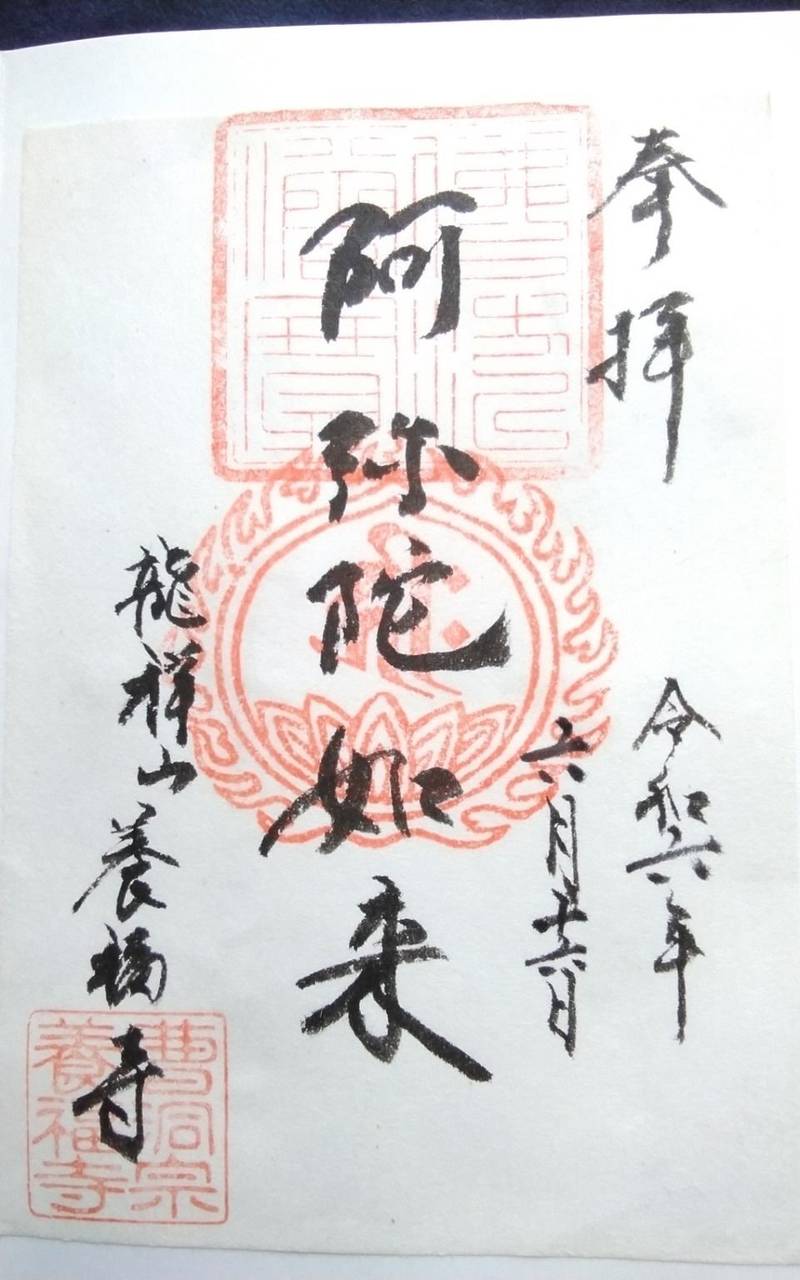 奉拝
令和六年
六月十六日
阿弥陀如来
龍祥山養福寺
曹洞宗
養福寺